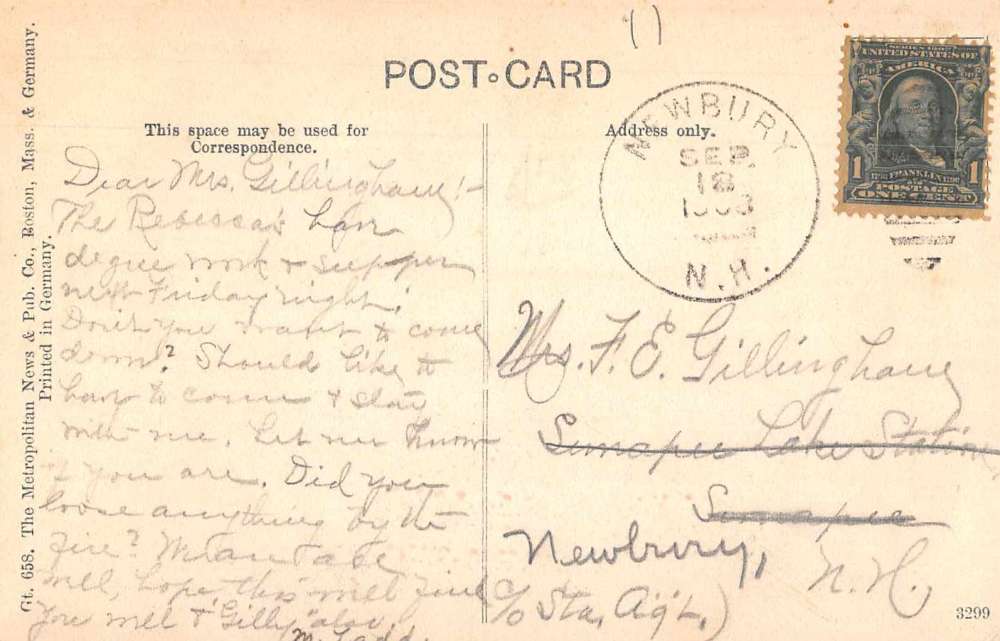 POST CARD
This space may be used for
Correspondence.
Address only.
Gt. 658. The Metropolitan News & Pub. Co., Boston, Mass. & Germany.
Printed in Germany.
NEWBURY
SEP.
18
N.H.
SERIES 1902
UNITED STATES OF
AMERICA
1
1
FRANKLIN
POSTAGE
ONE CENT
Dear Mrs. Gillingham:-
The Rebeccas have
degree work & supper
next Friday night.
Don't you want to come
down? Should like to
have to come & stay
with me. Let me know
if you are. Did you
loose anything by the
fire? We are
well, hope this will find
you well & "Gilly" also.
M. Ladd.
Mrs. F. E. Gillingham
Sunapee Lake Station
Sunapee
Newbury,
N. H.,
c/o Sta. Ag't.)
3299